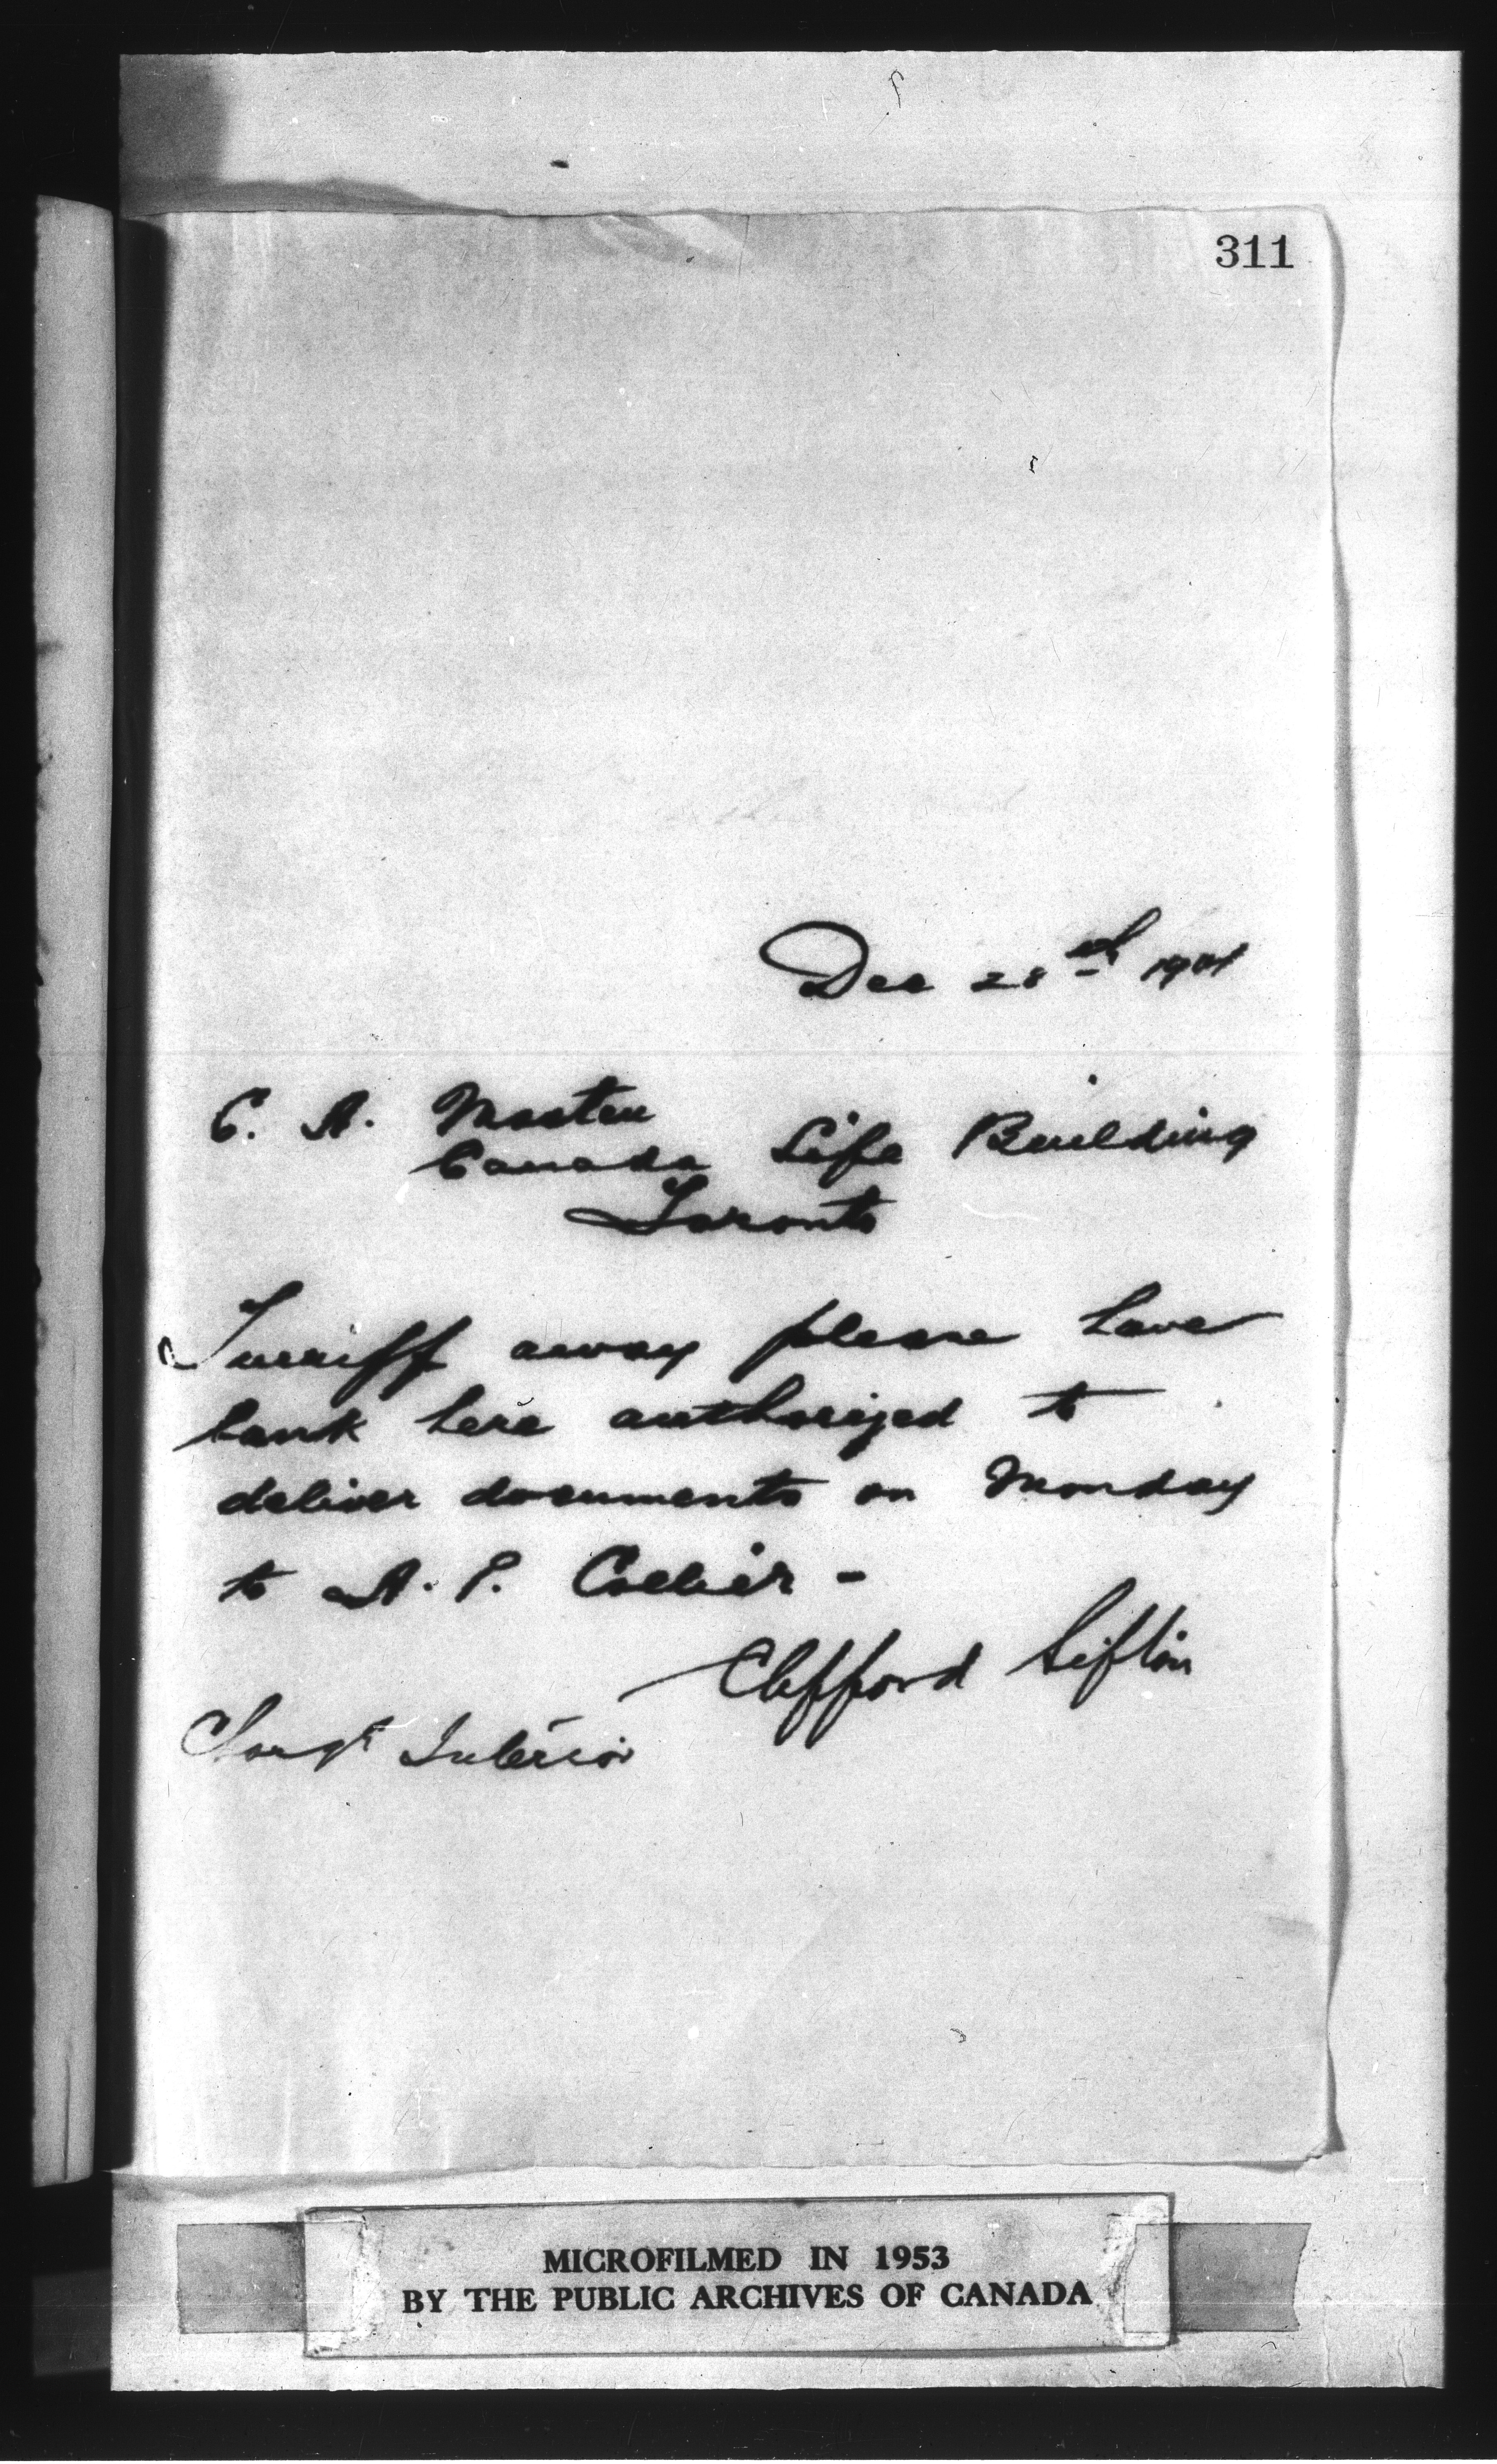 311
Dec 28th 1901
C. A. Masten
Canada Life Building
Toronto
Turriff away please have
bank here authorized to
deliver documents on Monday
to A. P. Collier -
Clifford Sifton
Charge Interior
MICROFILMED IN 1953
BY THE PUBLIC ARCHIVES OF CANADA